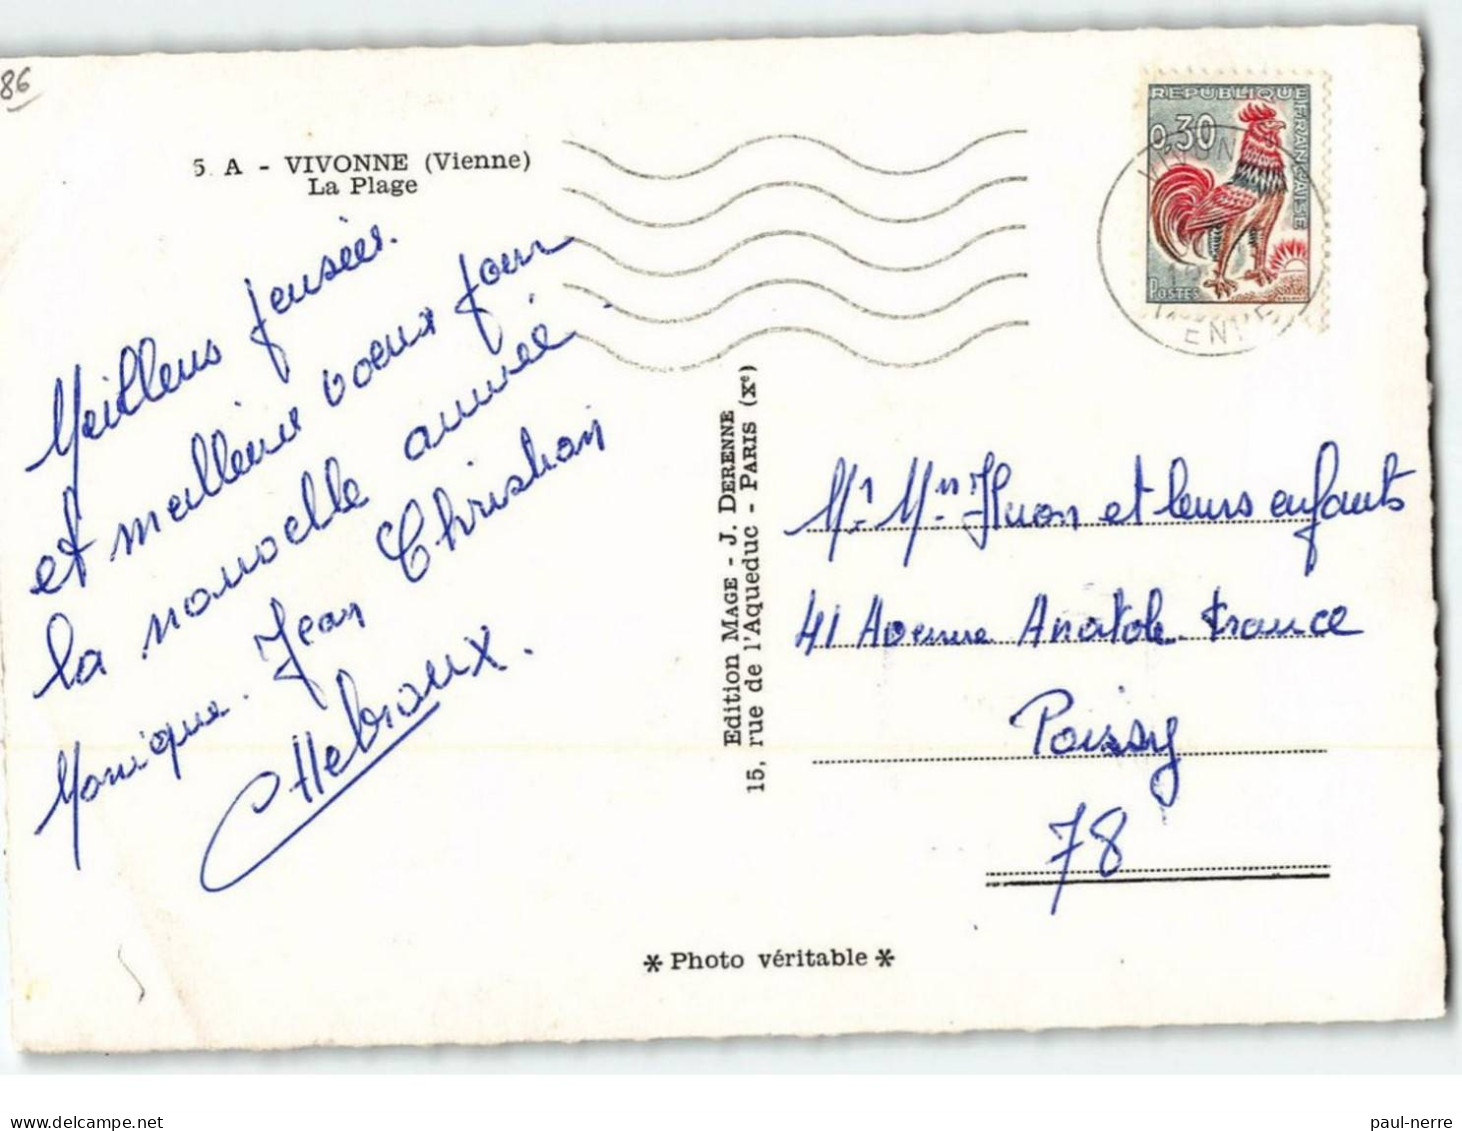 86
5. A - VIVONNE (Vienne)
La Plage
REPUBLIQUE FRANÇAISE
0,30
POSTES
Meilleurs pensées.
et meilleurs voeux pour
la nouvelle année.
Monique. Jean Christian
Edition MAGE - J. DERENNE
15, rue de l'Aqueduc - PARIS (Xe)
Mr Mme Huon et leurs enfants
41 Avenue Anatole France
Poissy
78
* Photo véritable *
paul-nerre